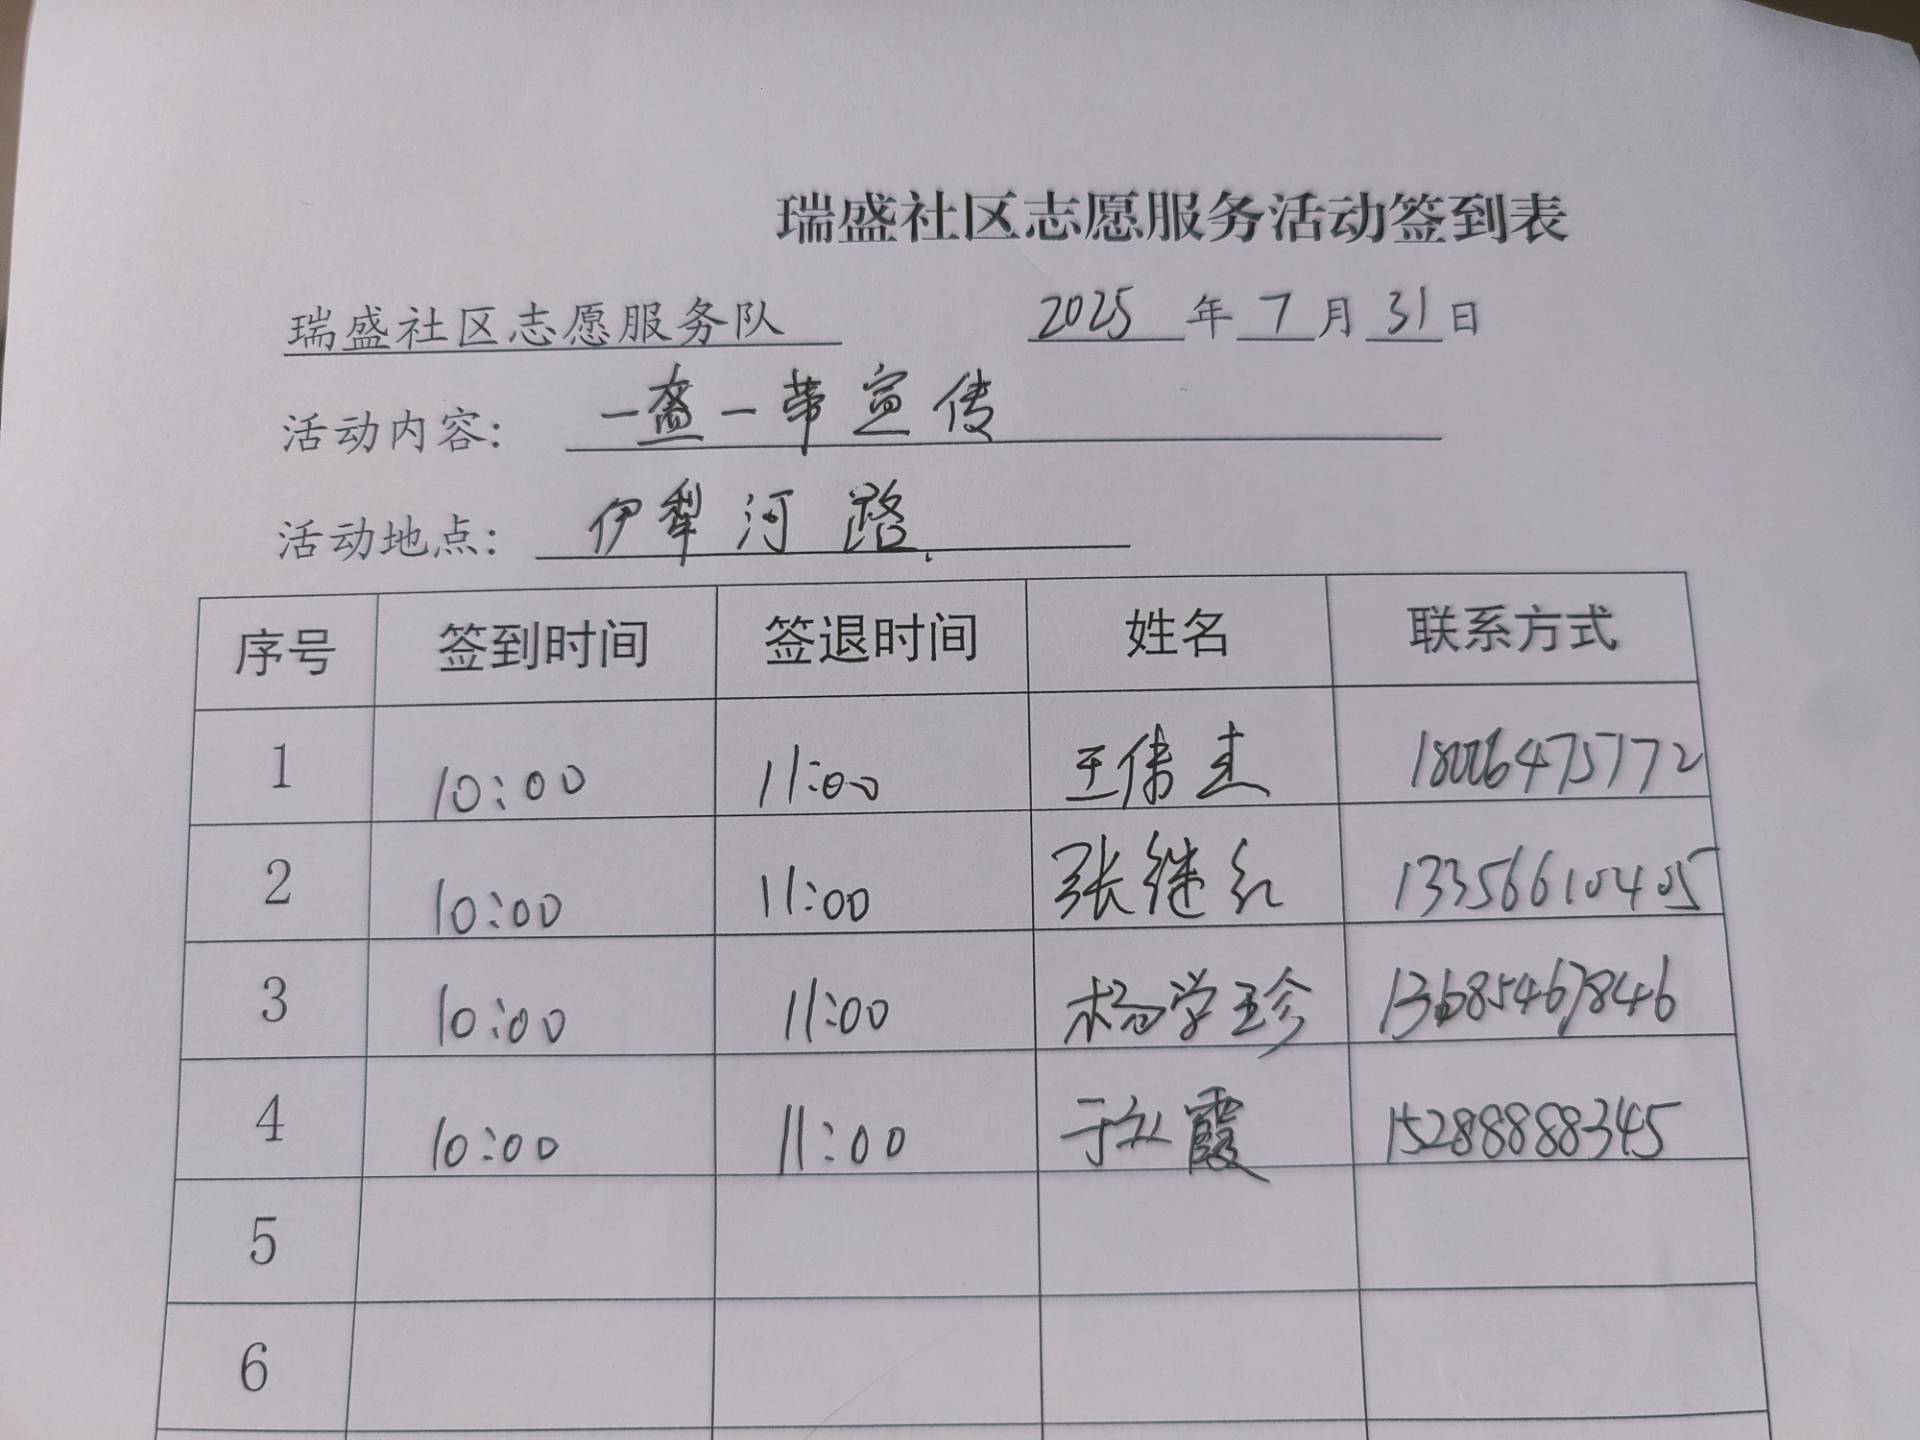 瑞盛社区志愿服务活动签到表
瑞盛社区志愿服务队 2025 年 7 月 31 日
活动内容: 一盔一带宣传
活动地点: 伊犁河路
序号 签到时间 签退时间 姓名 联系方式
1 10:00 11:00 王伟杰 18006475172
2 10:00 11:00 张继红 13356610405
3 10:00 11:00 杨学珍 13685467846
4 10:00 11:00 于 霞 15288888345
5
6